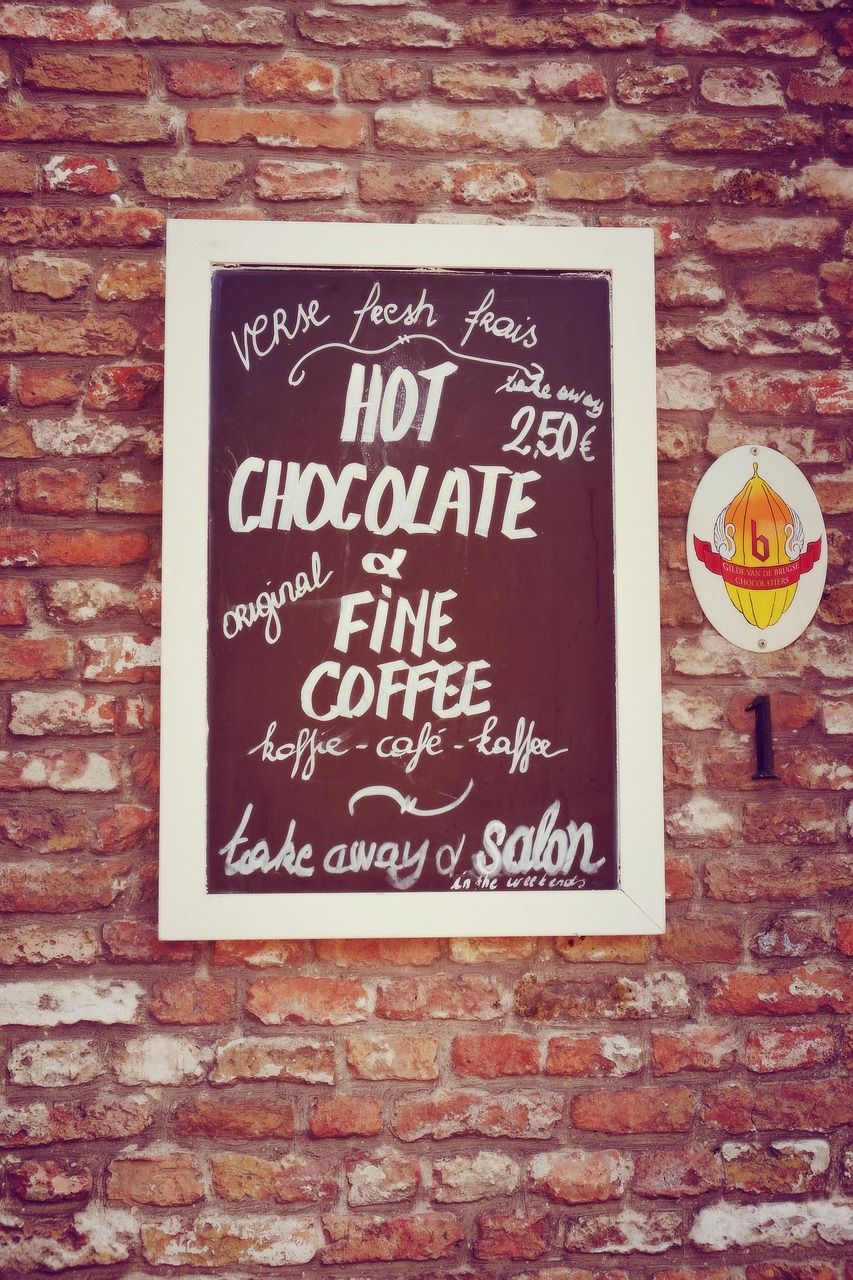 verse fresh frais
HOT
take away
2,50€
CHOCOLATE
&
original
FiNE
COFFEE
koffie - café - kaffee
take away & salon
in the weekends
b
GILDE VAN DE BRUGSE
CHOCOLATIERS
1